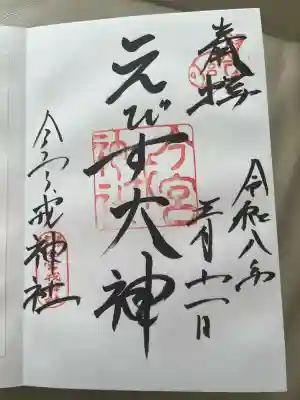 奉拝
令和八年
月十一日
えびす大神
今宮戎神社
今宮戎神社